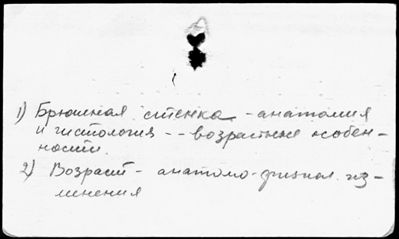 1) Брюшная стенка - анатомия
и гистология -- возрастные особен-
ности.
2) Возраст - анатомо-физиол. из-
менения